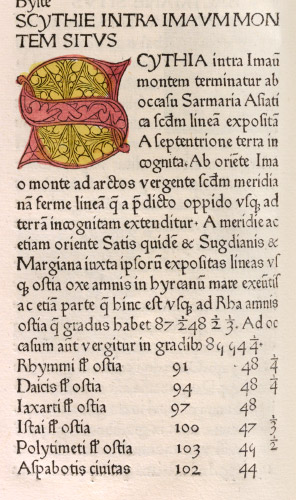 Byste
SCYTHIE INTRA IMAVM MON
TEM SITVS
SCYTHIA intra Imaū
montem terminatur ab
occasu Sarmaria Asiati
ca scdm̄ lineā expositā
A septentrione terra in
cognita. Ab oriēte Ima
o monte ad arctos vergente scdm̄ meridia
nā ferme lineā q̄ a p̄dicto oppido vsq; ad
terrā incognitam extenditur. A meridie ac
etiam oriente Satis quidē & Sugdianis &
Margiana iuxta ipsorū expositas lineas vs
q; ostia oxe amnis in hyrcanū mare exeūtis
ac etiā parte q̄ hinc est vsq; ad Rha amnis
ostia q̄ gradus habet 87 ½ 48 ½ ⅓. Ad oc
casum aūt vergitur in gradib⁹ 89 44 ¼.
Rhymmi fl̄ ostia 91 48 ¼
Daicis fl̄ ostia 94 48 ¼
Iaxarti fl̄ ostia 97 48
Istai fl̄ ostia 100 47 ⅓
Polytimeti fl̄ ostia 103 49 ½
Aspabotis ciuitas 102 44